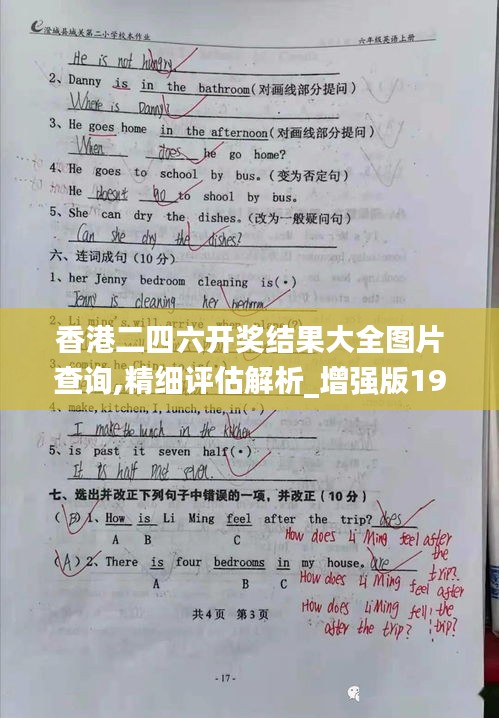 澄城县城关第二小学校本作业 六年级英语上册
He is not hungry
2、Danny is in the bathroom(对画线部分提问)
Where is Danny?
3、He goes home in the afternoon(对画线部分提问)
When does he go home?
4、He goes to school by bus。(变为否定句)
He doesnt go to shool by bus.
5、She can dry the dishes。(改为一般疑问句)
Can she dry the dishes?
六、连词成句(10分)
1、her Jenny bedroom cleaning is(·)
Jenny is cleaning her bedroom.
香港二四六开奖结果大全图片
查询,精细评估解析_增强版19
4、make,kitchen,I,lunch,the,in(·)
I make the lunch in the kitchen
5、is past it seven half(·)
It is half past seven.
七、选出并改正下列句子中错误的一项，并改正(10分)
(B)1、How is Li Ming feel after the trip? does
A B C
How does Li Ming feel after the trip?
(A)2、There is four bedrooms in my house。are
A B C
How does Li Ming feel after the trip?
How does Li Ming fell after the trip?
共4页 第3页
-17-